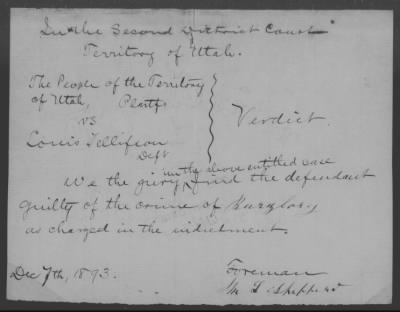 In the Second District Court
Territory of Utah.
The People of the Territory
of Utah, Plantfs
vs
Louis Tellifson
Deft
Verdict.
in the above entitled case
We the jury find the defendant
guilty of the crime of Burglary
as charged in the indictment.
Dec 7th, 1893.
Foreman
Sheppard